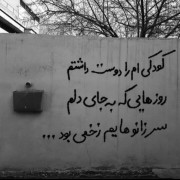 کودکی ام را دوست داشتم
روزهایی که به جای دلم
سر زانوهایم زخمی بود ...